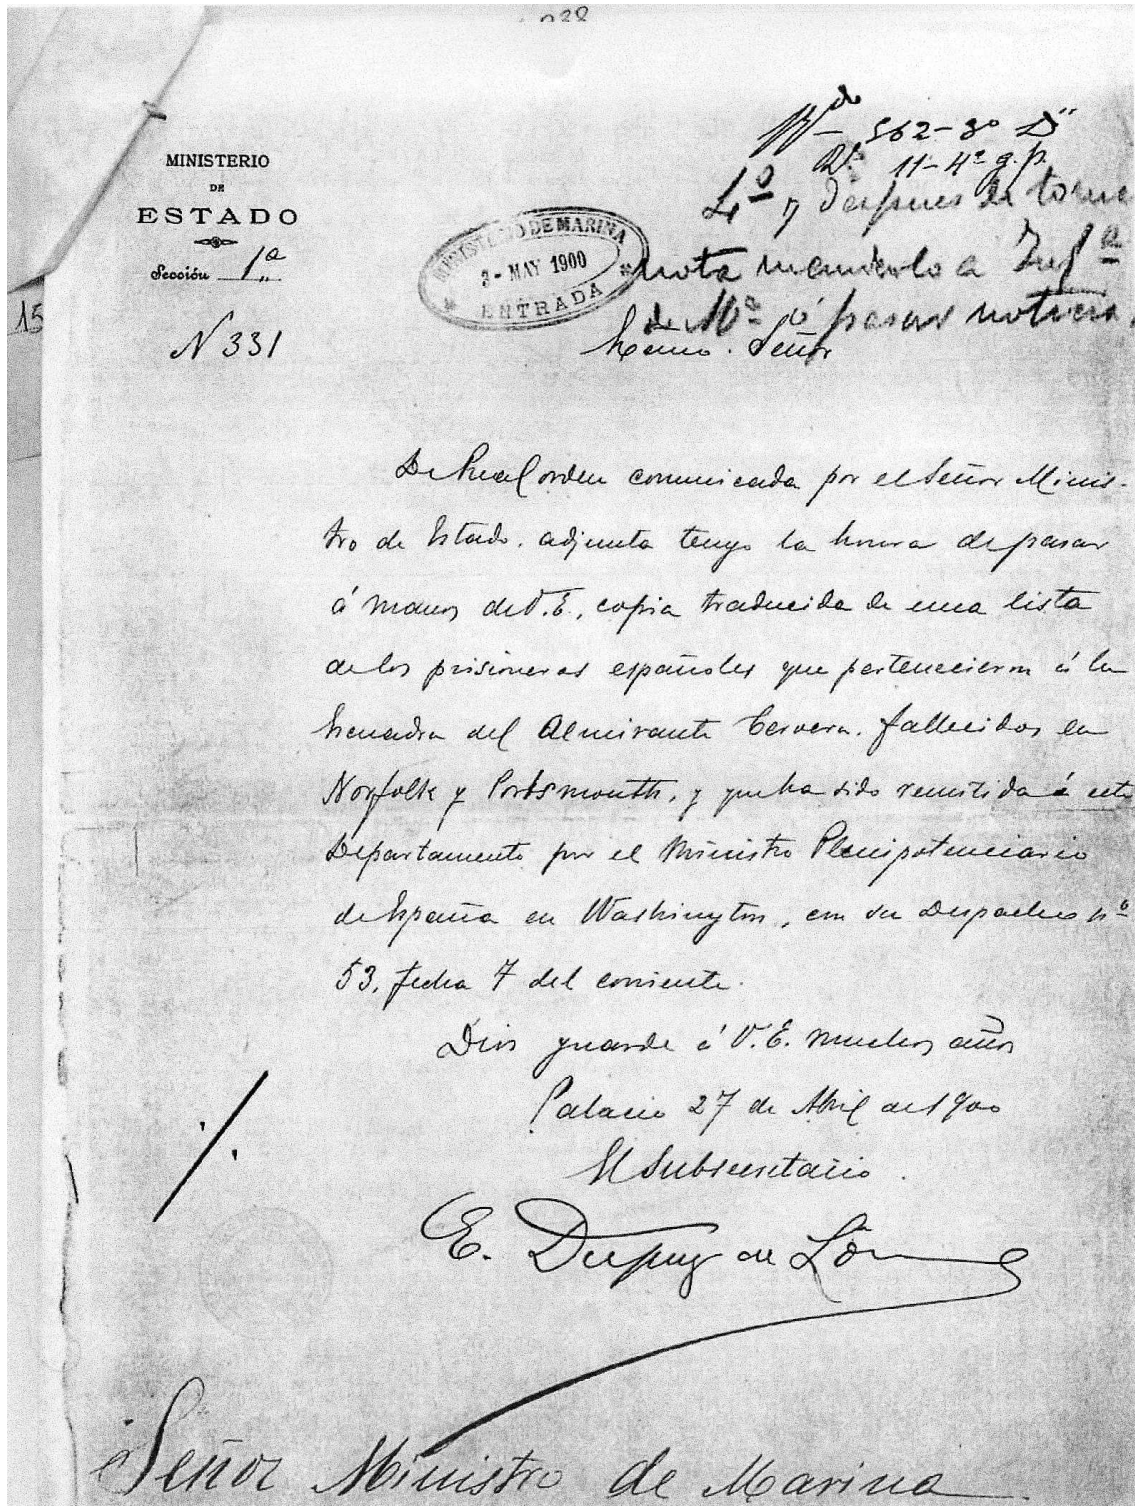 MINISTERIO
DE
ESTADO
Sección 1ª
N 331
15
562-3º
11-4º g.p.
4º y despues de tomar
nota
de Mª ó pasar noticia
MINISTERIO DE MARINA
3 - MAY 1900
ENTRADA
Excmo. Señor
De Real orden comunicada por el Señor Minis-
tro de Estado. adjunta tengo la honra de pasar
á manos de V.E. copia traducida de una lista
de los prisioneros españoles que pertenecieron á la
Escuadra del Almirante Cervera. fallecidos en
Norfolk y Portsmouth, y que ha sido remitida á este
Departamento por el Ministro Plenipotenciario
de España en Washington, en su Despacho nº
53, fecha 7 del corriente.
Dios guarde á V.E. muchos años
Palacio 27 de Abril de 1900
El Subsecretario.
E. Dupuy de Lôme
Señor Ministro de Marina